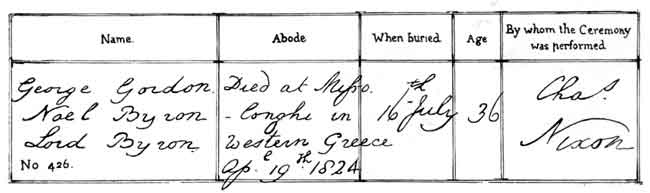 Name. Abode When buried Age By whom the Ceremony
was performed
George Gordon. Died at Misso. 16th July 36 Chas.
Noel Byron -longhi in Nixon
Lord Byron Western Greece
No 426. Apl 19th 1824